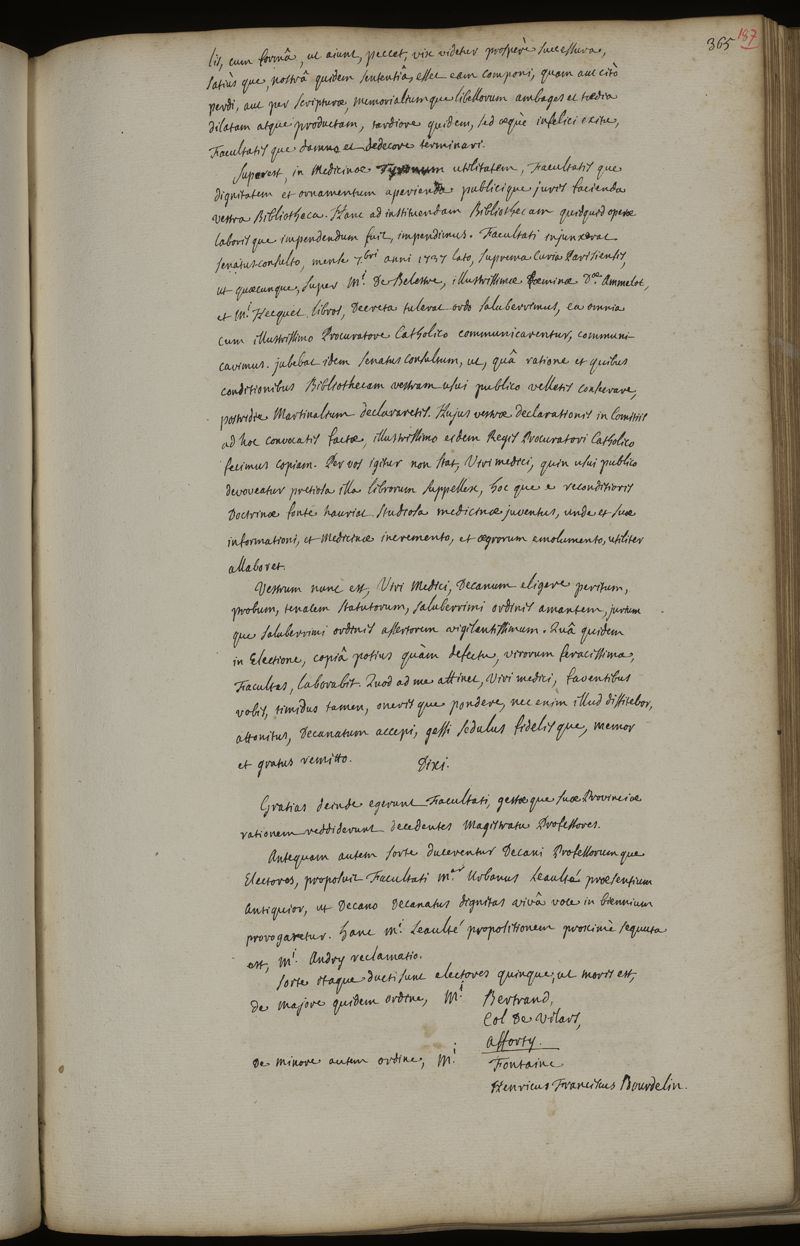 365 187
lis, cum formâ, ut aiunt, peccet, vix videtur prosperè successura,
satiùs que, nostrâ quidem sententiâ, esset eam componi, quam aut citò
perdi, aut per scripturæ, memorialiumque libellorum ambages et tædia
dilatam atque productam, tardiore quidem, sed æquè infelici exitu,
Facultatis que damno et dedecore terminari.
Superest, in Medicinæ Tyronum utilitatem, Facultatis que
dignitatem et ornamentum aperienda publicique juris facienda
vestra Bibliotheca. Hanc ad instituendam Bibliothecam quidquid operæ
laboris que impendendum fuit, impendimus. Facultati injunxerat
senatusconsulto, mense 7.bri anni 1737 lato, suprema Curia Parisiensis,
ut quæcunque, super M.i De Belestre, illustrissimæ fœminæ D.æ Ammelot,
et M.i Hecquet libros, Decreta tulerat ordo saluberrimus, ea omnia
cum illustrissimo Procuratore Catholico communicarentur, communi-
cavimus. jubebat idem senatus consultum, ut, quâ ratione et quibus
conditionibus Bibliothecam vestram usui publico velletis conservare,
postridie Martinalium declararetis. Hujus vestræ declarationis in Comitiis
ad hoc convocatis factæ, illustrissimo eidem Regis Procuratori Catholico
fecimus copiam. Per vos igitur non stat, Viri medici, quin usui publico
devoveatur pretiosa illa librorum suppellex, hoc que e reconditioris
Doctrinæ fonte hauriat studiosa medicinæ juventus, unde et suæ
informationi, et Medicinæ incremento, et ægrorum emolumento, utiliter
allaboret.
Vestrum nunc est, Viri Medici, Decanum eligere peritum,
probum, tenacem statutorum, saluberrimi ordinis amantem, jurium
que saluberrimi ordinis assertorem vigilantissimum. Quâ quidem
in Electione, copiâ potius quàm defectu, virorum feracissima,
Facultas, laborabit. Quod ad me attinet, Viri medici, faventibus
vobis, timidus tamen, oneris que pondere, nec enim illud diffitebor,
attonitus, Decanatum accepi, gessi sedulus fidelisque, memor
et gratus remitto. Dixi.
Gratias deinde egerunt Facultati, gestæ que suæ Provinciæ
rationem reddiderunt decedentes Magistratu Professores.
Antequam autem sorte ducerentur Decani Professorumque
Electores, proposuit Facultati M.er Urbanus Leaulté præsentium
Antiquior, ut Decano Decanatus dignitas vivâ voce in biennium
prorogaretur. hanc M.i Leaulté propositionem proximè sequuta
est, M.i Andry reclamatio.
sorte itaque ducti sunt electores quinque, ut moris est,
de majore quidem ordine, M.i Bertrand,
Col De Vilars,
Afforty.
De minore autem ordine, M.i Fontaine
Henricus Franciscus Bourdelin.